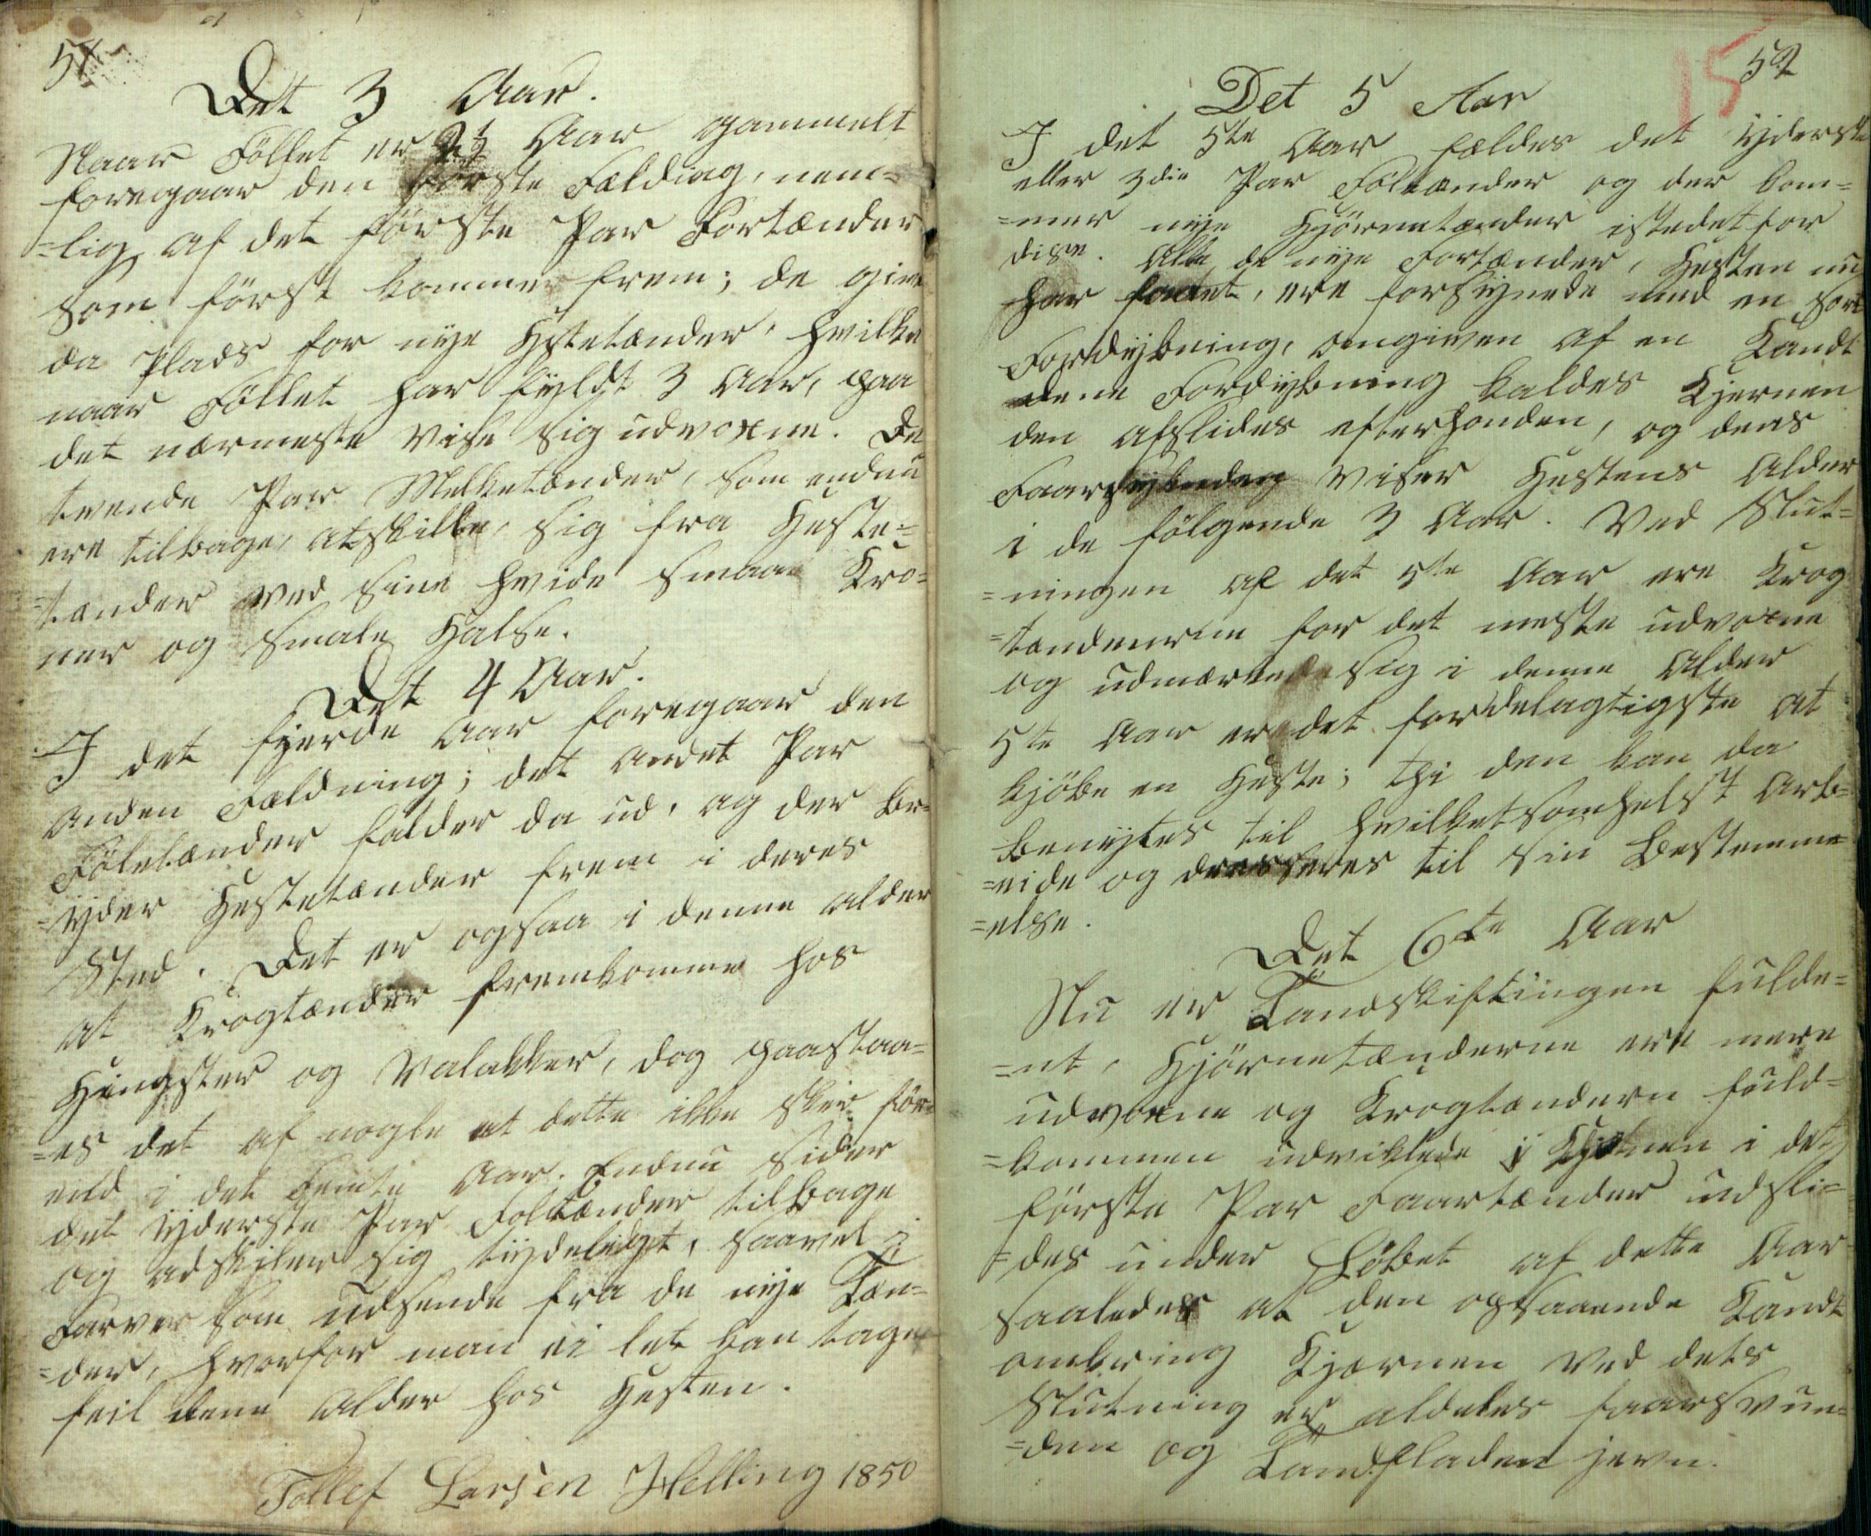 51
Det 3 Aar.
Naar Føllet er 2½ Aar gammelt
foregaar den første Fælding, nem=
=lig af det første Par Fortænder
som først kommer frem; de give
da Plads for nye Hstetænder, hvilke
naar Føllet har fyldt 3 Aar, paa
det nærmeste vise sig udvoxne. De
tvende Par Melketænder, som endnu
ere tilbage, atskille, sig fra Heste=
=tænder ved sine hvide smaa Kro=
ner og smale Halse.
Det 4 Aar.
I det fjerde Aar foregaar den
anden Fældning; det andet Par
Føletænder falder da ud, og der br=
=yder Hestetænder frem i deres
Sted. Det er ogsaa i denne alder
at Krogtænder fremkomme hos
Hingster og Valakker, dog paastaa=
=es det af nogle at dette ikke skér før
end i det femte Aar. Endnu sider
det yderste Par Foltænder tilbage
og adskiler sig tydeligt, saavel i
Farver som Udsende fra de nye Tæn=
=der, hvorfor man ei let kan tage
feil denne Alder hos Hesten.
Tollef Larsen Helling 1850
15
52
Det 5 Aar
I det 5te Aar fældes det yderste
eller 3die Par Føltænder og der kom=
=mer nye Hjørnetænder istedetfor
disse. Alle de nye Fortænder, Hesten nu
har faaet, ere forsynede med en sort
Fordybning, omgiven af en Kandt
dene Fordybning kaldes Kjernen
den afslides efterhonden, og dens
viser Hestens Alder
i de følgende 3 Aar. Ved Slut=
=ningen af det 5te Aar ere Krog
=tænderne for det meste udvoxne
og udmærked sig i denne Alder
5te Aar er det fordelagtigste at
kjøbe en Heste; thi den kan da
benyttes til hvilketsomhelst Arb=
=eide og dresseres til sin Bestemme=
=else.
Det 6te Aar
Nu er Tandskiftingen fulde=
=nt, Hjørnetænderne ere mere
udvoxne og Krogtændern fuld=
=kommen udviklede i det
første Par Faartænder udsli=
=des under Løbet af dette Aar
saaledes at den opstaaende Kandt
omkring Kjærnen ved dets
Slutning er aldeles faarsvun=
=den og Tandfladen jevn.